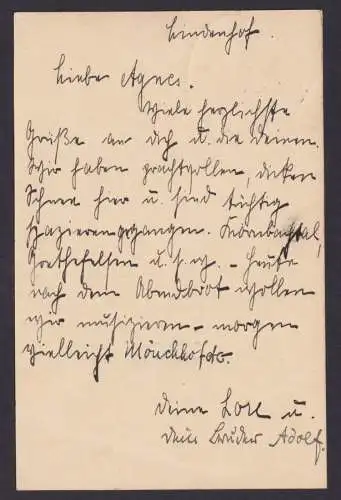 Lindenhof.
Liebe Agnes.
Viele herzlichste
Grüße an dich u. die deinen.
Wir haben prachtvollen, dicken
Schnee hier u. sind tüchtig
spazieren gegangen.
Goethefelsen u.s.w. – Heute
nach dem Abendbrot wollen
wir musizieren – morgen
vielleicht Mönchhof etc.
deine Lore u.
dein Bruder Adolf.